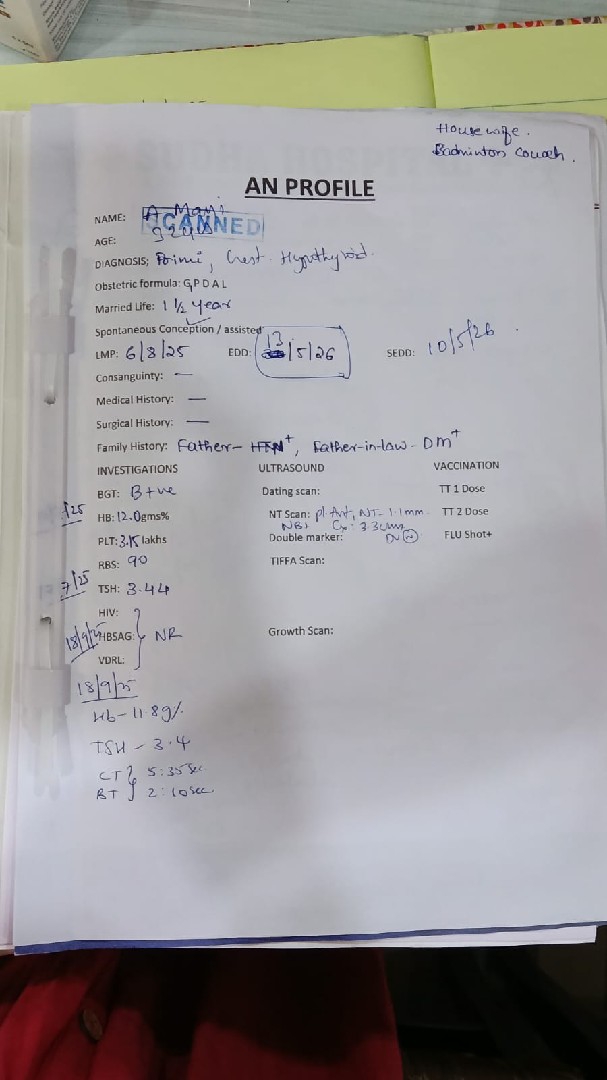 Housewife.
Badminton Couach.
AN PROFILE
NAME: A Mani
SCANNED
AGE:
DIAGNOSIS; Primi, Gest. Hypothyroid.
Obstetric formula: G P D A L
Married Life: 1 ½ year
Spontaneous Conception / assisted
LMP: 6/8/25 EDD: 13/5/26 SEDD: 10/5/26.
Consanguinty: —
Medical History: —
Surgical History: —
Family History: Father - HTN+, Father-in-law - DM+
INVESTIGATIONS ULTRASOUND VACCINATION
BGT: B+ve Dating scan: TT 1 Dose
/25 HB: 12.0gms% NT Scan: pl. Ant, NT- 1.1mm TT 2 Dose
NB) Cx: 3.3cms
PLT: 3.15 lakhs Double marker: N FLU Shot+
RBS: 90 TIFFA Scan:
7/25 TSH: 3.44
HIV:
18/9/25 HBSAG: NR Growth Scan:
VDRL:
18/9/25
Hb - 11.8g%
TSH - 3.4
CT 5:35 Sec
BT 2:10 Sec.